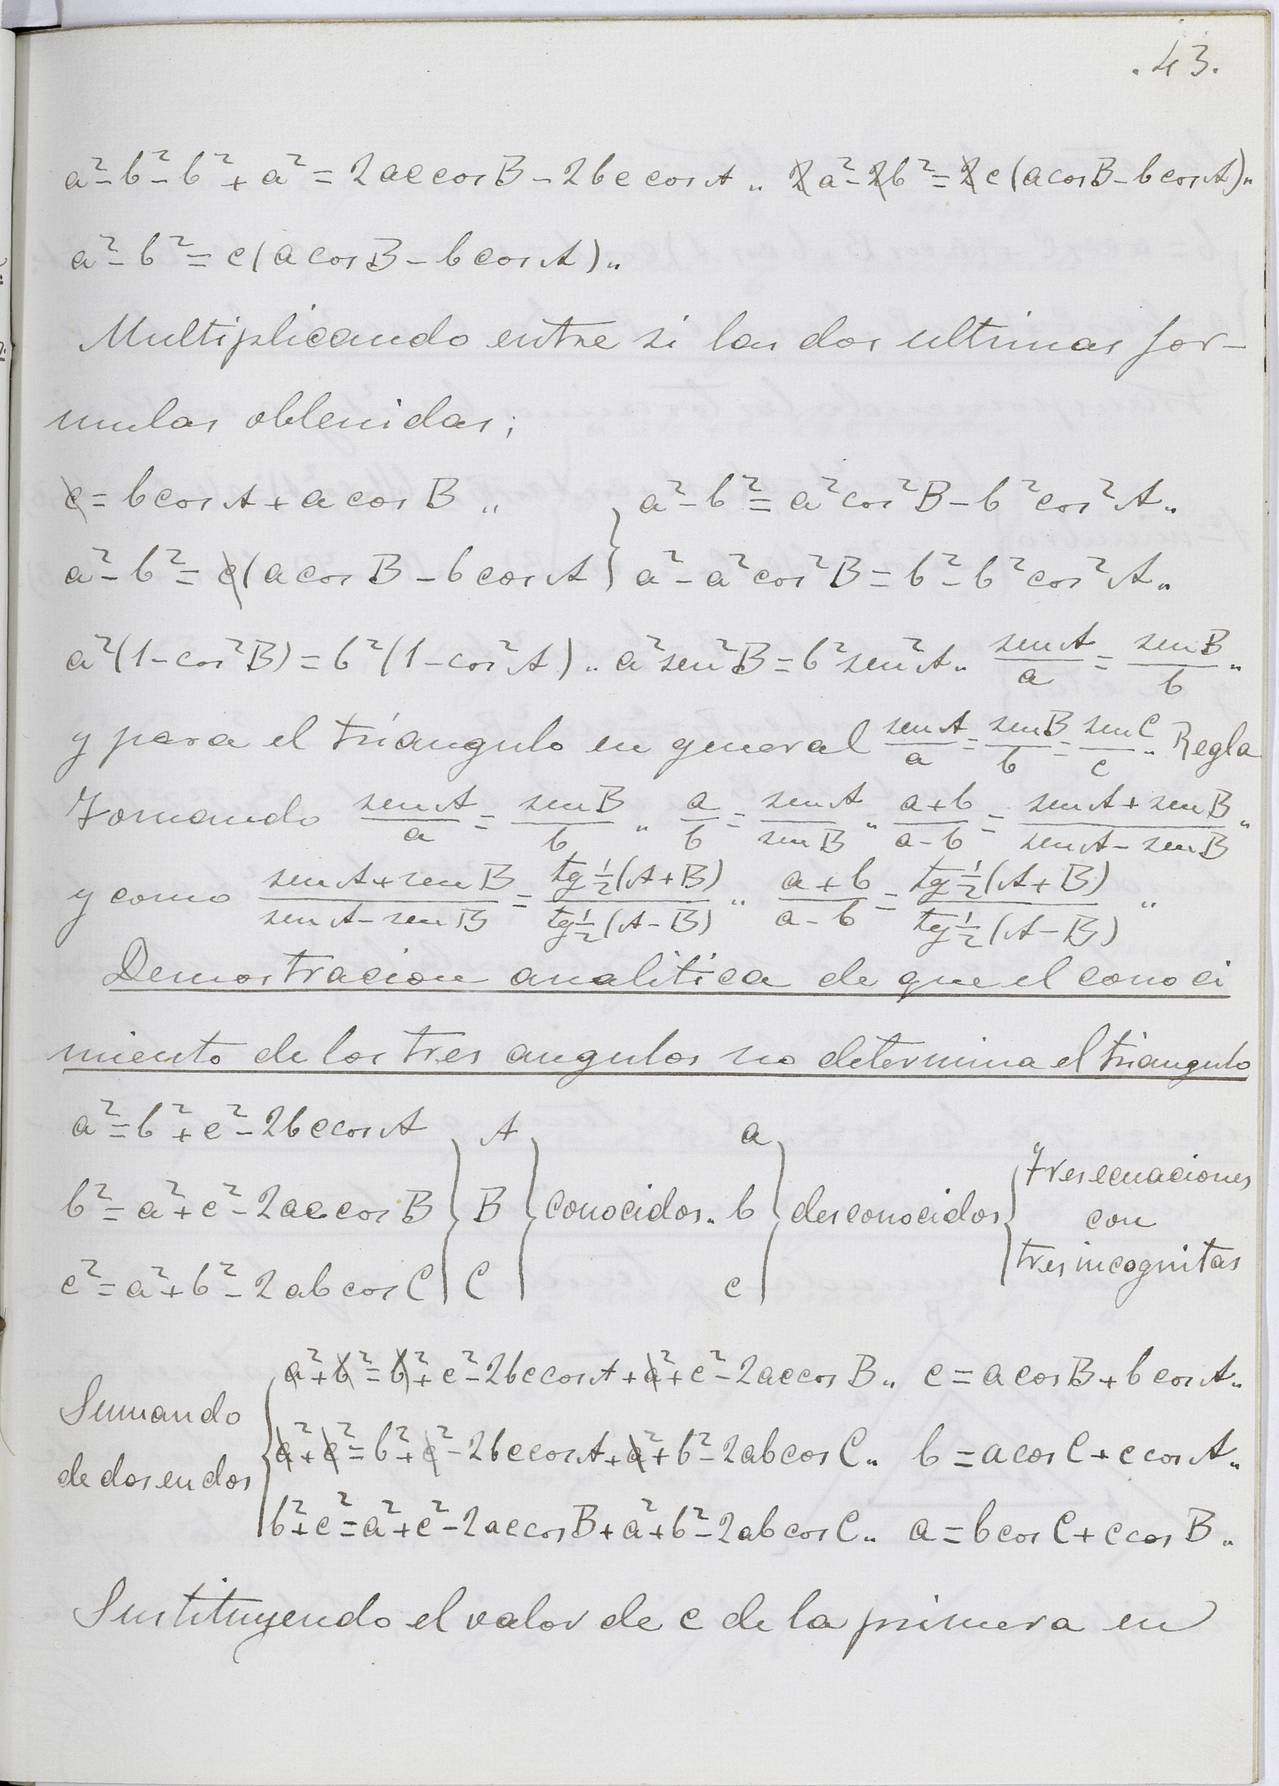 .43.
a²-b²-b²+a²=2ac cos B-2bc cos A.. 2a²-2b²=2c(a cos B-b cos A)..
a²-b²=c(a cos B-b cos A)..
Multiplicando entre si las dos ultimas for-
mulas obtenidas;
c=b cos A+a cos B .. } a²-b²=a²cos²B-b²cos²A..
a²-b²=c(a cos B-b cos A } a²-a²cos²B=b²-b²cos²A..
a²(1-cos²B)=b²(1-cos²A).. a²sen²B=b²sen²A.. sen A/a=sen B/b..
y para el triángulo en general sen A/a=sen B/b=sen C/c.. Regla
Tomando sen A/a=sen B/b.. a/b=sen A/sen B.. a+b/a-b=sen A+sen B/sen A-sen B..
y como sen A+sen B/sen A-sen B=tg½(A+B)/tg½(A-B).. a+b/a-b=tg½(A+B)/tg½(A-B) ..
Demostracion analitica de que el conoci
miento de los tres angulos no determina el triangulo
a²=b²+c²-2bc cos A } A } a } { Tres ecuaciones
b²=a²+c²-2ac cos B } B } conocidos.. b } desconocidos { con
c²=a²+b²-2ab cos C } C } c } { tres incognitas
Sumando { a²+b²=b²+c²-2bc cos A+a²+c²-2ac cos B.. c=a cos B+b cos A..
de dos en dos { a²+c²=b²+c²-2bc cos A+a²+b²-2ab cos C.. b=a cos C+c cos A..
{ b²+c²=a²+c²-2ac cos B+a²+b²-2ab cos C.. a=b cos C+c cos B..
Sustituyendo el valor de c de la primera en